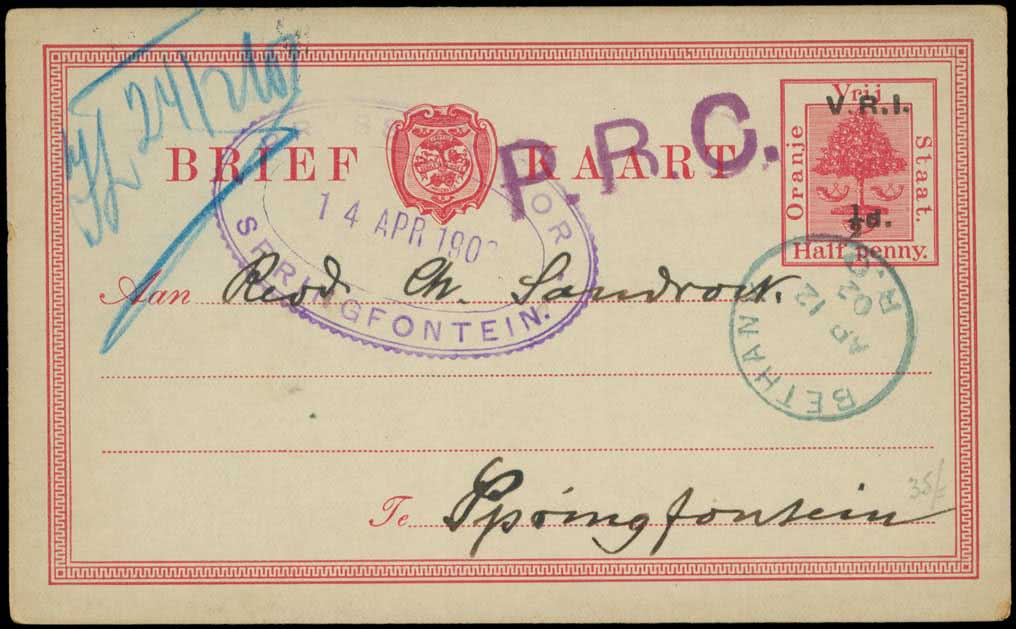 BRIEF KAART
P.R.C.
Vrij
Oranje
Staat.
V.R.I.
½d.
Half penny.
14 APR 190
SPRINGFONTEIN.
BETHANY
AP 12
02
Aan Revd. Ch. Sandrock.
Te Springfontein
35/-